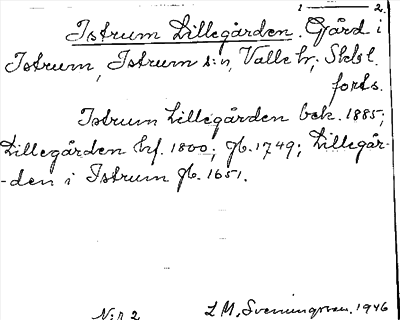 1 — 2.
Istrum Lillegården. Gård i
Istrum, Istrum s:n, Valle hr; Skbl.
forts.
Istrum Lillegården bek. 1885;
Lillegården hf. 1800; gb. 1749; Lillegår-
-den i Istrum gb. 1651.
N:r 2 L M, Svenningsson. 1946